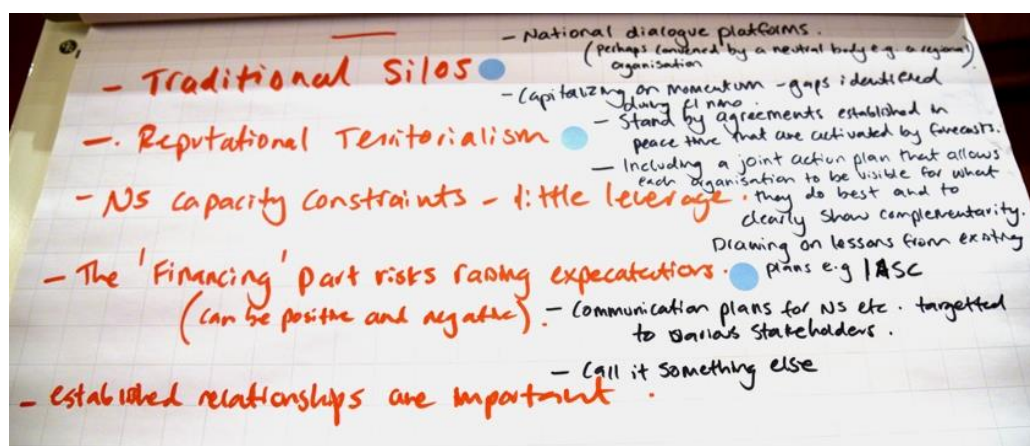 - Traditional Silos
- Reputational Territorialism
- NS capacity constraints - little leverage.
- The 'Financing' part risks raising expecatations.
(can be positive and negative).
- established relationships are important.
- National dialogue platforms.
(perhaps convened by a neutral body e.g. a regional
organisation)
- Capitalizing on momentum - gaps identified
during El nino.
- Stand by agreements established in
peace time that are activated by forecasts.
- Including a joint action plan that allows
each organisation to be visible for what
they do best and to
clearly show complementarity.
Drawing on lessons from existing
plans e.g IASC
- Communication plans for NS etc. targetted
to various stakeholders.
- Call it something else